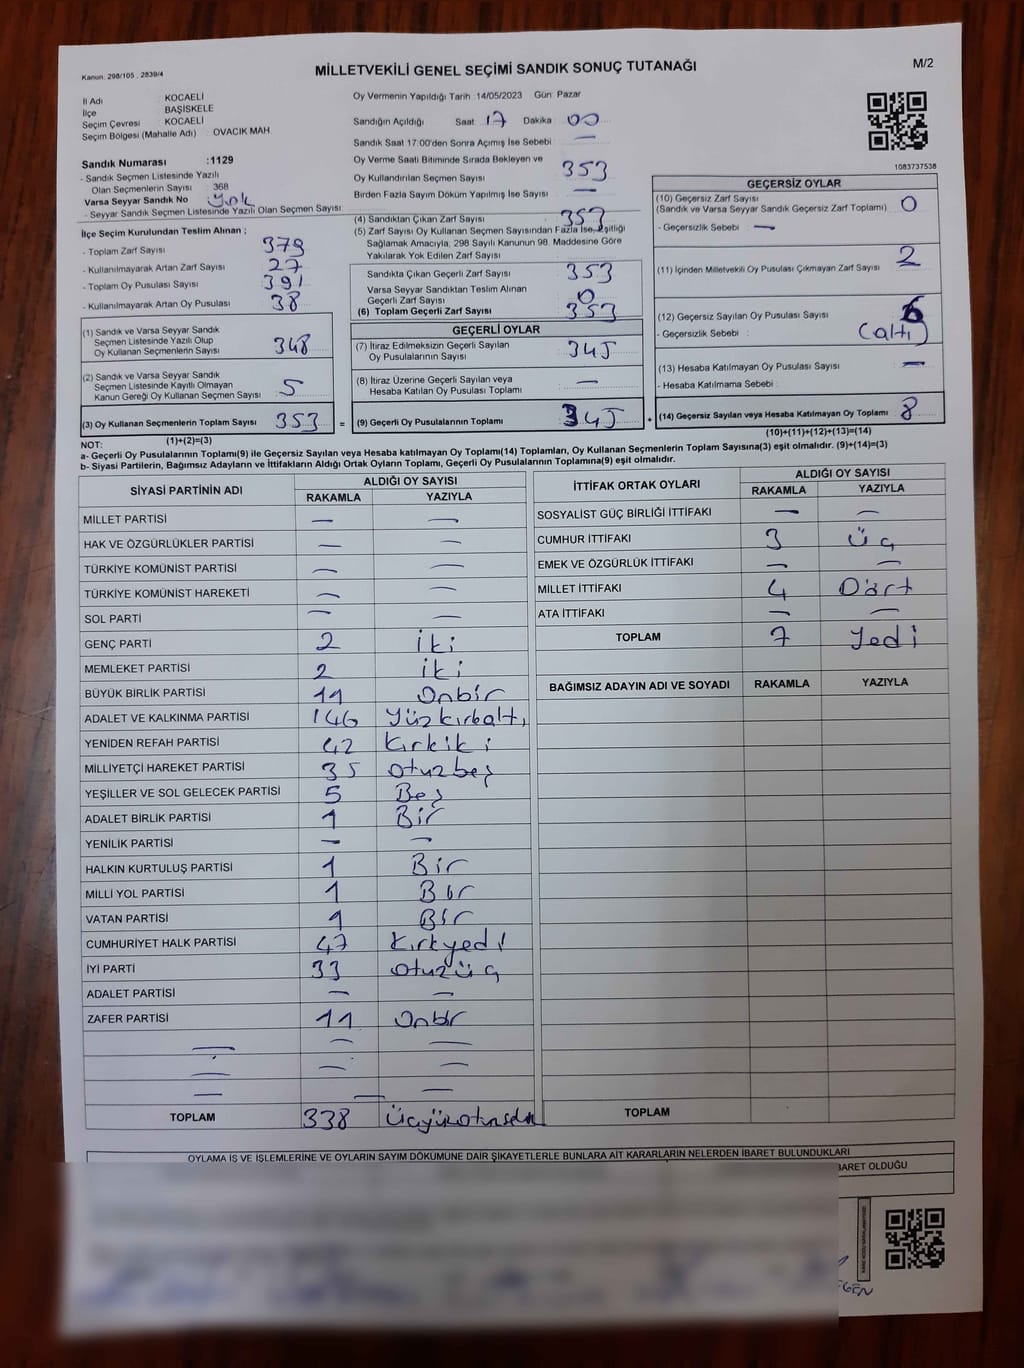 Kanun: 298/105 , 2839/4
MİLLETVEKİLİ GENEL SEÇİMİ SANDIK SONUÇ TUTANAĞI
M/2
İl Adı KOCAELİ
İlçe BAŞİSKELE
Seçim Çevresi KOCAELİ
Seçim Bölgesi (Mahalle Adı) : OVACIK MAH.
Sandık Numarası :1129
- Sandık Seçmen Listesinde Yazılı
Olan Seçmenlerin Sayısı : 368
Varsa Seyyar Sandık No Yok
- Seyyar Sandık Seçmen Listesinde Yazılı Olan Seçmen Sayısı :
İlçe Seçim Kurulundan Teslim Alınan ;
- Toplam Zarf Sayısı 379
- Kullanılmayarak Artan Zarf Sayısı 27
- Toplam Oy Pusulası Sayısı 391
- Kullanılmayarak Artan Oy Pusulası 38
(1) Sandık ve Varsa Seyyar Sandık
Seçmen Listesinde Yazılı Olup
Oy Kullanan Seçmenlerin Sayısı 348
(2) Sandık ve Varsa Seyyar Sandık
Seçmen Listesinde Kayıtlı Olmayan
Kanun Gereği Oy Kullanan Seçmen Sayısı 5
(3) Oy Kullanan Seçmenlerin Toplam Sayısı 353 =
(1)+(2)=(3)
Oy Vermenin Yapıldığı Tarih :14/05/2023 Gün: Pazar
Sandığın Açıldığı Saat 17 Dakika : 00
Sandık Saat 17:00'den Sonra Açılmış İse Sebebi : —
Oy Verme Saati Bitiminde Sırada Bekleyen ve
Oy Kullandırılan Seçmen Sayısı 353
Birden Fazla Sayım Döküm Yapılmış İse Sayısı —
(4) Sandıktan Çıkan Zarf Sayısı 353
(5) Zarf Sayısı Oy Kullanan Seçmen Sayısından Fazla İse, Eşitliği
Sağlamak Amacıyla, 298 Sayılı Kanunun 98. Maddesine Göre
Yakılarak Yok Edilen Zarf Sayısı :
Sandıkta Çıkan Geçerli Zarf Sayısı 353
Varsa Seyyar Sandıktan Teslim Alınan
Geçerli Zarf Sayısı 0
(6) Toplam Geçerli Zarf Sayısı 353
GEÇERLİ OYLAR
(7) İtiraz Edilmeksizin Geçerli Sayılan
Oy Pusulalarının Sayısı : 345
(8) İtiraz Üzerine Geçerli Sayılan veya
Hesaba Katılan Oy Pusulası Toplamı —
(9) Geçerli Oy Pusulalarının Toplamı 345 +
1083737538
GEÇERSİZ OYLAR
(10) Geçersiz Zarf Sayısı
(Sandık ve Varsa Seyyar Sandık Geçersiz Zarf Toplamı) 0
- Geçersizlik Sebebi : —
(11) İçinden Milletvekili Oy Pusulası Çıkmayan Zarf Sayısı 2
(12) Geçersiz Sayılan Oy Pusulası Sayısı 6
- Geçersizlik Sebebi : (altı)
(13) Hesaba Katılmayan Oy Pusulası Sayısı —
- Hesaba Katılmama Sebebi :
(14) Geçersiz Sayılan veya Hesaba Katılmayan Oy Toplamı 8
(10)+(11)+(12)+(13)=(14)
NOT:
a- Geçerli Oy Pusulalarının Toplamı(9) ile Geçersiz Sayılan veya Hesaba katılmayan Oy Toplamı(14) Toplamları, Oy Kullanan Seçmenlerin Toplam Sayısına(3) eşit olmalıdır. (9)+(14)=(3)
b- Siyasi Partilerin, Bağımsız Adayların ve İttifakların Aldığı Ortak Oyların Toplamı, Geçerli Oy Pusulalarının Toplamına(9) eşit olmalıdır.
SİYASİ PARTİNİN ADI ALDIĞI OY SAYISI
RAKAMLA YAZIYLA
MİLLET PARTİSİ — —
HAK VE ÖZGÜRLÜKLER PARTİSİ — —
TÜRKİYE KOMÜNİST PARTİSİ — —
TÜRKİYE KOMÜNİST HAREKETİ — —
SOL PARTİ — —
GENÇ PARTİ 2 iki
MEMLEKET PARTİSİ 2 iki
BÜYÜK BİRLİK PARTİSİ 11 Onbir
ADALET VE KALKINMA PARTİSİ 146 Yüzkırkaltı
YENİDEN REFAH PARTİSİ 42 Kırkiki
MİLLİYETÇİ HAREKET PARTİSİ 35 otuzbeş
YEŞİLLER VE SOL GELECEK PARTİSİ 5 Beş
ADALET BİRLİK PARTİSİ 1 Bir
YENİLİK PARTİSİ — —
HALKIN KURTULUŞ PARTİSİ 1 Bir
MİLLİ YOL PARTİSİ 1 Bir
VATAN PARTİSİ 1 Bir
CUMHURİYET HALK PARTİSİ 47 Kırkyedi
İYİ PARTİ 33 otuzüç
ADALET PARTİSİ — —
ZAFER PARTİSİ 11 Onbir
— — —
— — —
— — —
TOPLAM 338 Üçyüzotuzsekiz
İTTİFAK ORTAK OYLARI ALDIĞI OY SAYISI
RAKAMLA YAZIYLA
SOSYALİST GÜÇ BİRLİĞİ İTTİFAKI — —
CUMHUR İTTİFAKI 3 üç
EMEK VE ÖZGÜRLÜK İTTİFAKI — —
MİLLET İTTİFAKI 4 Dört
ATA İTTİFAKI — —
TOPLAM 7 Yedi
BAĞIMSIZ ADAYIN ADI VE SOYADI RAKAMLA YAZIYLA
TOPLAM
OYLAMA İŞ VE İŞLEMLERİNE VE OYLARIN SAYIM DÖKÜMÜNE DAİR ŞİKAYETLERLE BUNLARA AİT KARARLARIN NELERDEN İBARET BULUNDUKLARI
BARET OLDUĞU